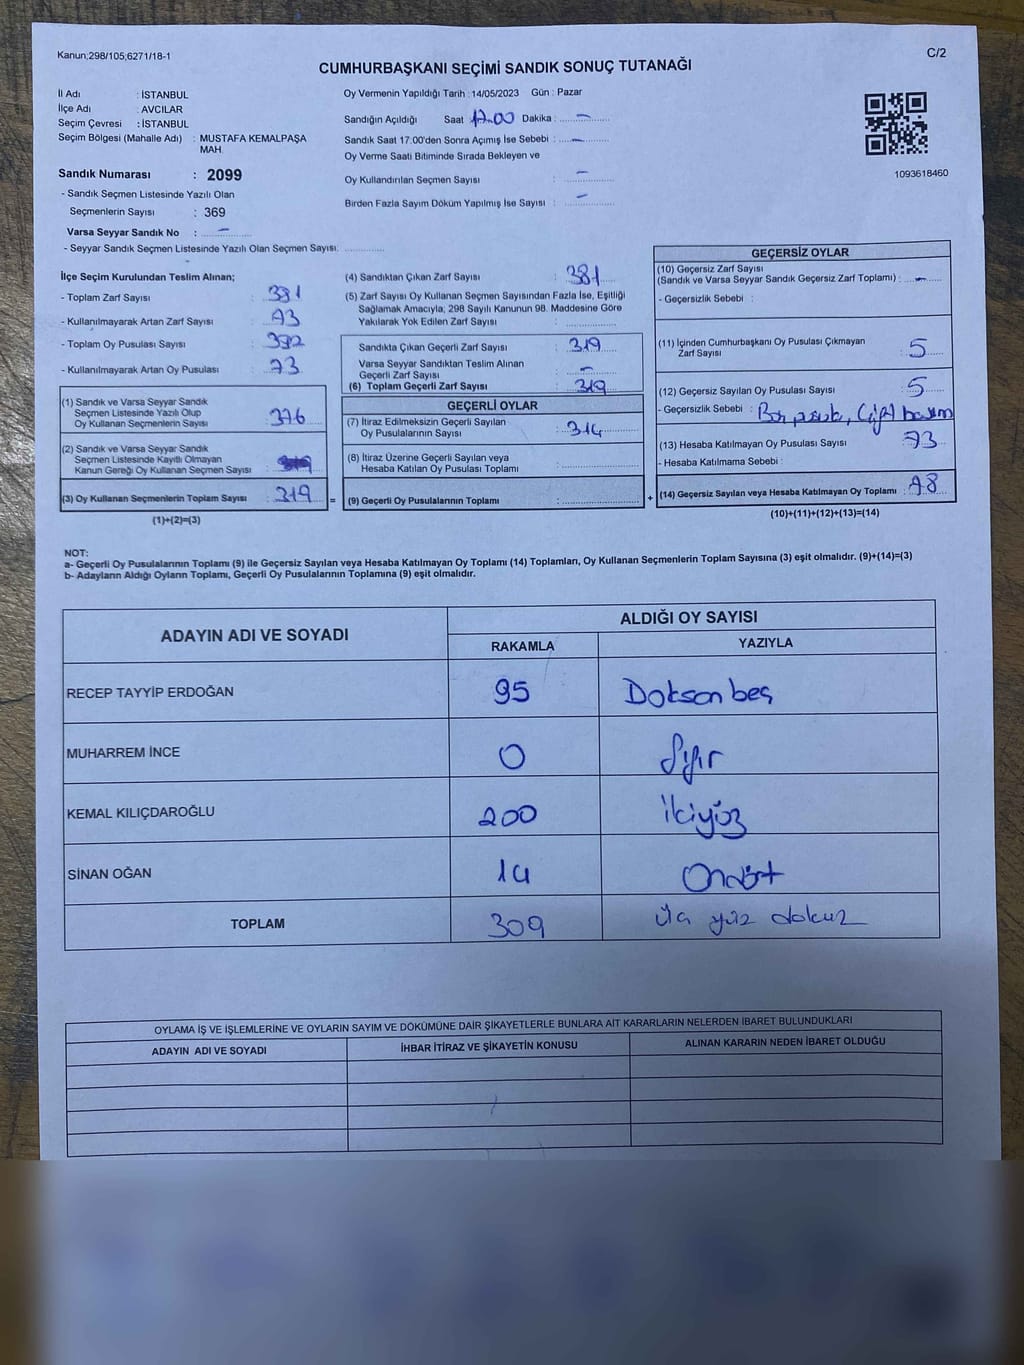 Kanun;298/105;6271/18-1
C/2
CUMHURBAŞKANI SEÇİMİ SANDIK SONUÇ TUTANAĞI
İl Adı : İSTANBUL
İlçe Adı : AVCILAR
Seçim Çevresi : İSTANBUL
Seçim Bölgesi (Mahalle Adı) : MUSTAFA KEMALPAŞA
MAH.
Sandık Numarası : 2099
- Sandık Seçmen Listesinde Yazılı Olan
Seçmenlerin Sayısı : 369
Varsa Seyyar Sandık No : -
- Seyyar Sandık Seçmen Listesinde Yazılı Olan Seçmen Sayısı: ............
Oy Vermenin Yapıldığı Tarih :14/05/2023 Gün : Pazar
Sandığın Açıldığı Saat 17.00 Dakika : -
Sandık Saat 17.00'den Sonra Açımış İse Sebebi : -
Oy Verme Saati Bitiminde Sırada Bekleyen ve
Oy Kullandırılan Seçmen Sayısı : -
Birden Fazla Sayım Döküm Yapılmış İse Sayısı : -
1093618460
İlçe Seçim Kurulundan Teslim Alınan;
- Toplam Zarf Sayısı :
- Kullanılmayarak Artan Zarf Sayısı : 73
- Toplam Oy Pusulası Sayısı : 392
- Kullanılmayarak Artan Oy Pusulası : 73
(1) Sandık ve Varsa Seyyar Sandık
Seçmen Listesinde Yazılı Olup
Oy Kullanan Seçmenlerin Sayısı :
(2) Sandık ve Varsa Seyyar Sandık
Seçmen Listesinde Kayıtlı Olmayan
Kanun Gereği Oy Kullanan Seçmen Sayısı :
(3) Oy Kullanan Seçmenlerin Toplam Sayısı : 319
(1)+(2)=(3)
=
(4) Sandıktan Çıkan Zarf Sayısı : 381
(5) Zarf Sayısı Oy Kullanan Seçmen Sayısından Fazla İse, Eşitliği
Sağlamak Amacıyla; 298 Sayılı Kanunun 98. Maddesine Göre
Yakılarak Yok Edilen Zarf Sayısı : ............
Sandıkta Çıkan Geçerli Zarf Sayısı : 319
Varsa Seyyar Sandıktan Teslim Alınan
Geçerli Zarf Sayısı : -
(6) Toplam Geçerli Zarf Sayısı : 319
GEÇERLİ OYLAR
(7) İtiraz Edilmeksizin Geçerli Sayılan
Oy Pusulalarının Sayısı : 314
(8) İtiraz Üzerine Geçerli Sayılan veya
Hesaba Katılan Oy Pusulası Toplamı : ............
(9) Geçerli Oy Pusulalarının Toplamı : ............
+
GEÇERSİZ OYLAR
(10) Geçersiz Zarf Sayısı
(Sandık ve Varsa Seyyar Sandık Geçersiz Zarf Toplamı) : -
- Geçersizlik Sebebi :
(11) İçinden Cumhurbaşkanı Oy Pusulası Çıkmayan
Zarf Sayısı : 5
(12) Geçersiz Sayılan Oy Pusulası Sayısı : 5
- Geçersizlik Sebebi : Boş pusula, Çift basım
(13) Hesaba Katılmayan Oy Pusulası Sayısı : 73
- Hesaba Katılmama Sebebi :
(14) Geçersiz Sayılan veya Hesaba Katılmayan Oy Toplamı : 78
(10)+(11)+(12)+(13)=(14)
NOT:
a- Geçerli Oy Pusulalarının Toplamı (9) ile Geçersiz Sayılan veya Hesaba Katılmayan Oy Toplamı (14) Toplamları, Oy Kullanan Seçmenlerin Toplam Sayısına (3) eşit olmalıdır. (9)+(14)=(3)
b- Adayların Aldığı Oyların Toplamı, Geçerli Oy Pusulalarının Toplamına (9) eşit olmalıdır.
ADAYIN ADI VE SOYADI
ALDIĞI OY SAYISI
RAKAMLA YAZIYLA
RECEP TAYYİP ERDOĞAN 95 Doksan beş
MUHARREM İNCE 0 Sıfır
KEMAL KILIÇDAROĞLU 200 İkiyüz
SİNAN OĞAN 14 Ondört
TOPLAM 309 üç yüz dokuz
OYLAMA İŞ VE İŞLEMLERİNE VE OYLARIN SAYIM VE DÖKÜMÜNE DAİR ŞİKAYETLERLE BUNLARA AİT KARARLARIN NELERDEN İBARET BULUNDUKLARI
ADAYIN ADI VE SOYADI İHBAR İTİRAZ VE ŞİKAYETİN KONUSU ALINAN KARARIN NEDEN İBARET OLDUĞU